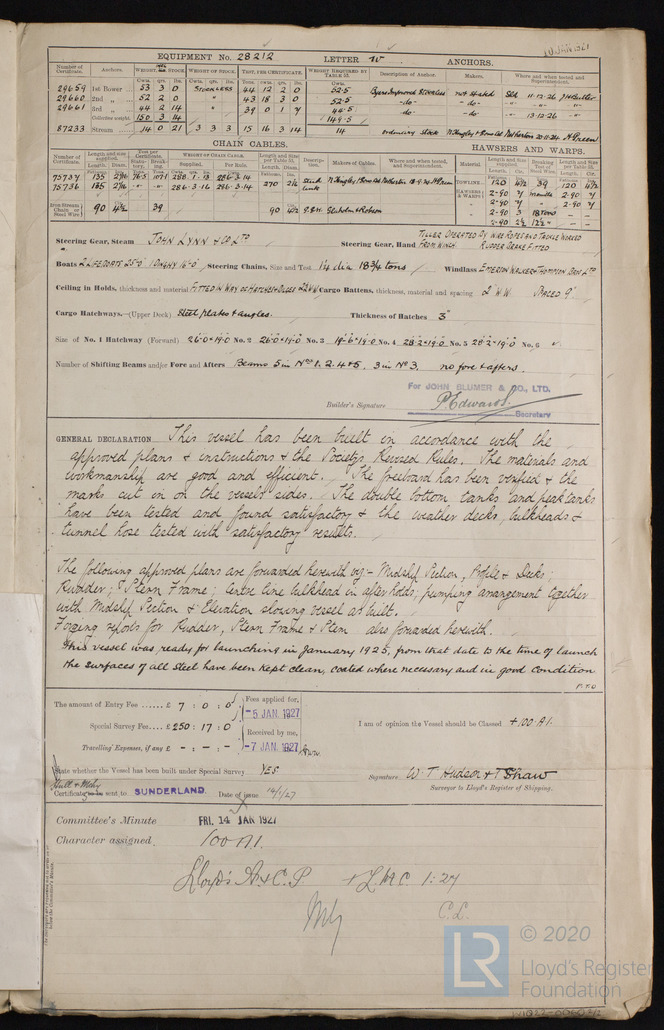 10 JAN 1927
EQUIPMENT No. 28212 LETTER W ANCHORS.
Number of Certificate. Anchors. WEIGHT, STOCK. WEIGHT OF STOCK. TEST, PER CERTIFICATE. WEIGHT REQUIRED BY TABLE 53. Description of Anchor. Makers. Where and when tested and Superintendent.
29659 1st Bower 53 3 0 STOCKLESS 44 12 2 0 52.5 Byers Improved Stockless not stated Sld 11.12.26
29660 2nd " 52 2 0 " 43 18 3 0 52.5 -do- -do- " "
29661 3rd " 44 2 14 " 39 0 1 7 44.5 -do- -do- " 13.12.26
Collective weight 150 3 14 149.5
87233 Stream 14 0 21 3 3 3 15 16 3 14 14 ordinary stock N. Hingley & Sons Ld Netherton 20.11.24 H. Green
CHAIN CABLES. HAWSERS AND WARPS.
75737 135 2 1/16 76.5 107.1 288.1.13 286.3.14 270 2 1/16 Stud link N. Hingley & Sons Ld Netherton
75736 135 2 1/16 " " 286.3.16 286.3.14
Iron Stream Chain or Steel Wire 90 4½ 39 90 4½ Glaholm & Robson
TOWLINE 120 4½ 39 120 4½
HAWSERS & WARPS 2-90 7 2-90 7
2-90 7 " 2-90 7
2-90 3 18 tons
2-90 2½ 12½ "
Steering Gear, Steam JOHN LYNN & CO LTD Steering Gear, Hand TILLER OPERATED BY WIRE ROPES AND TACKLE WORKED FROM WINCH RUDDER BRAKE FITTED
Boats 2 LIFEBOATS 25'0" 1 DINGHY 16'0" Steering Chains, Size and Test 1¼ dia 18¾ tons Windlass EMERSON WALKER & THOMPSON BROS LTD
Ceiling in Holds, thickness and material FITTED IN WAY OF HATCHES & BILGES 2½ W.W. Cargo Battens, thickness, material and spacing 2" W.W. SPACED 9"
Cargo Hatchways.—(Upper Deck) Steel plates & angles. Thickness of Hatches 3"
Size of No. 1 Hatchway (Forward) 26'0 × 19'0 No. 2 26'0 × 19'0 No. 3 19'6 × 19'0 No. 4 28'2 × 19'0 No. 5 28'2 × 19'0 No. 6
Number of Shifting Beams and/or Fore and Afters Beams 5 in Nos 1. 2. 4 & 5. 3 in No 3. no fore & afters.
For JOHN BLUMER & CO., LTD.
Builder's Signature P. Edwards. Secretary
GENERAL DECLARATION This vessel has been built in accordance with the
approved plans & instructions & the Society's Revised Rules. The materials and
workmanship are good and efficient. The freeboard has been verified & the
marks cut in on the vessel's sides. The double bottom tanks and peak tanks
have been tested and found satisfactory & the weather decks, bulkheads &
tunnel hose tested with satisfactory results.
The following approved plans are forwarded herewith viz:- Midship Section, Profile & Decks;
Rudder; Stern Frame; Centre line bulkhead in after holds; pumping arrangement together
with Midship Section & Elevation showing vessel as built.
Forging reports for Rudder, Stern Frame & Stem also forwarded herewith.
This vessel was ready for launching in January 1925, from that date to the time of launch
the surfaces of all steel have been kept clean, coated where necessary and in good condition
P.T.O
The amount of Entry Fee ...... £ 7 : 0 : 0
Special Survey Fee.... £ 250 : 17 : 0
Travelling Expenses, if any £ - : - : -
Fees applied for,
-5 JAN. 1927
Received by me,
-7 JAN. 1927
I am of opinion the Vessel should be Classed +100.A1.
State whether the Vessel has been built under Special Survey YES
Signature W. T. Hudson & T Shaw
Surveyor to Lloyd's Register of Shipping.
Hull & Mchy
Certificate sent to SUNDERLAND. Date of issue 14/1/27
Committee's Minute FRI. 14 JAN 1927
Character assigned 100 A1.
Lloyd's A. & C. P. + L.M.C. 1.27
C.L.
LR
© 2020
Lloyd's Register
Foundation